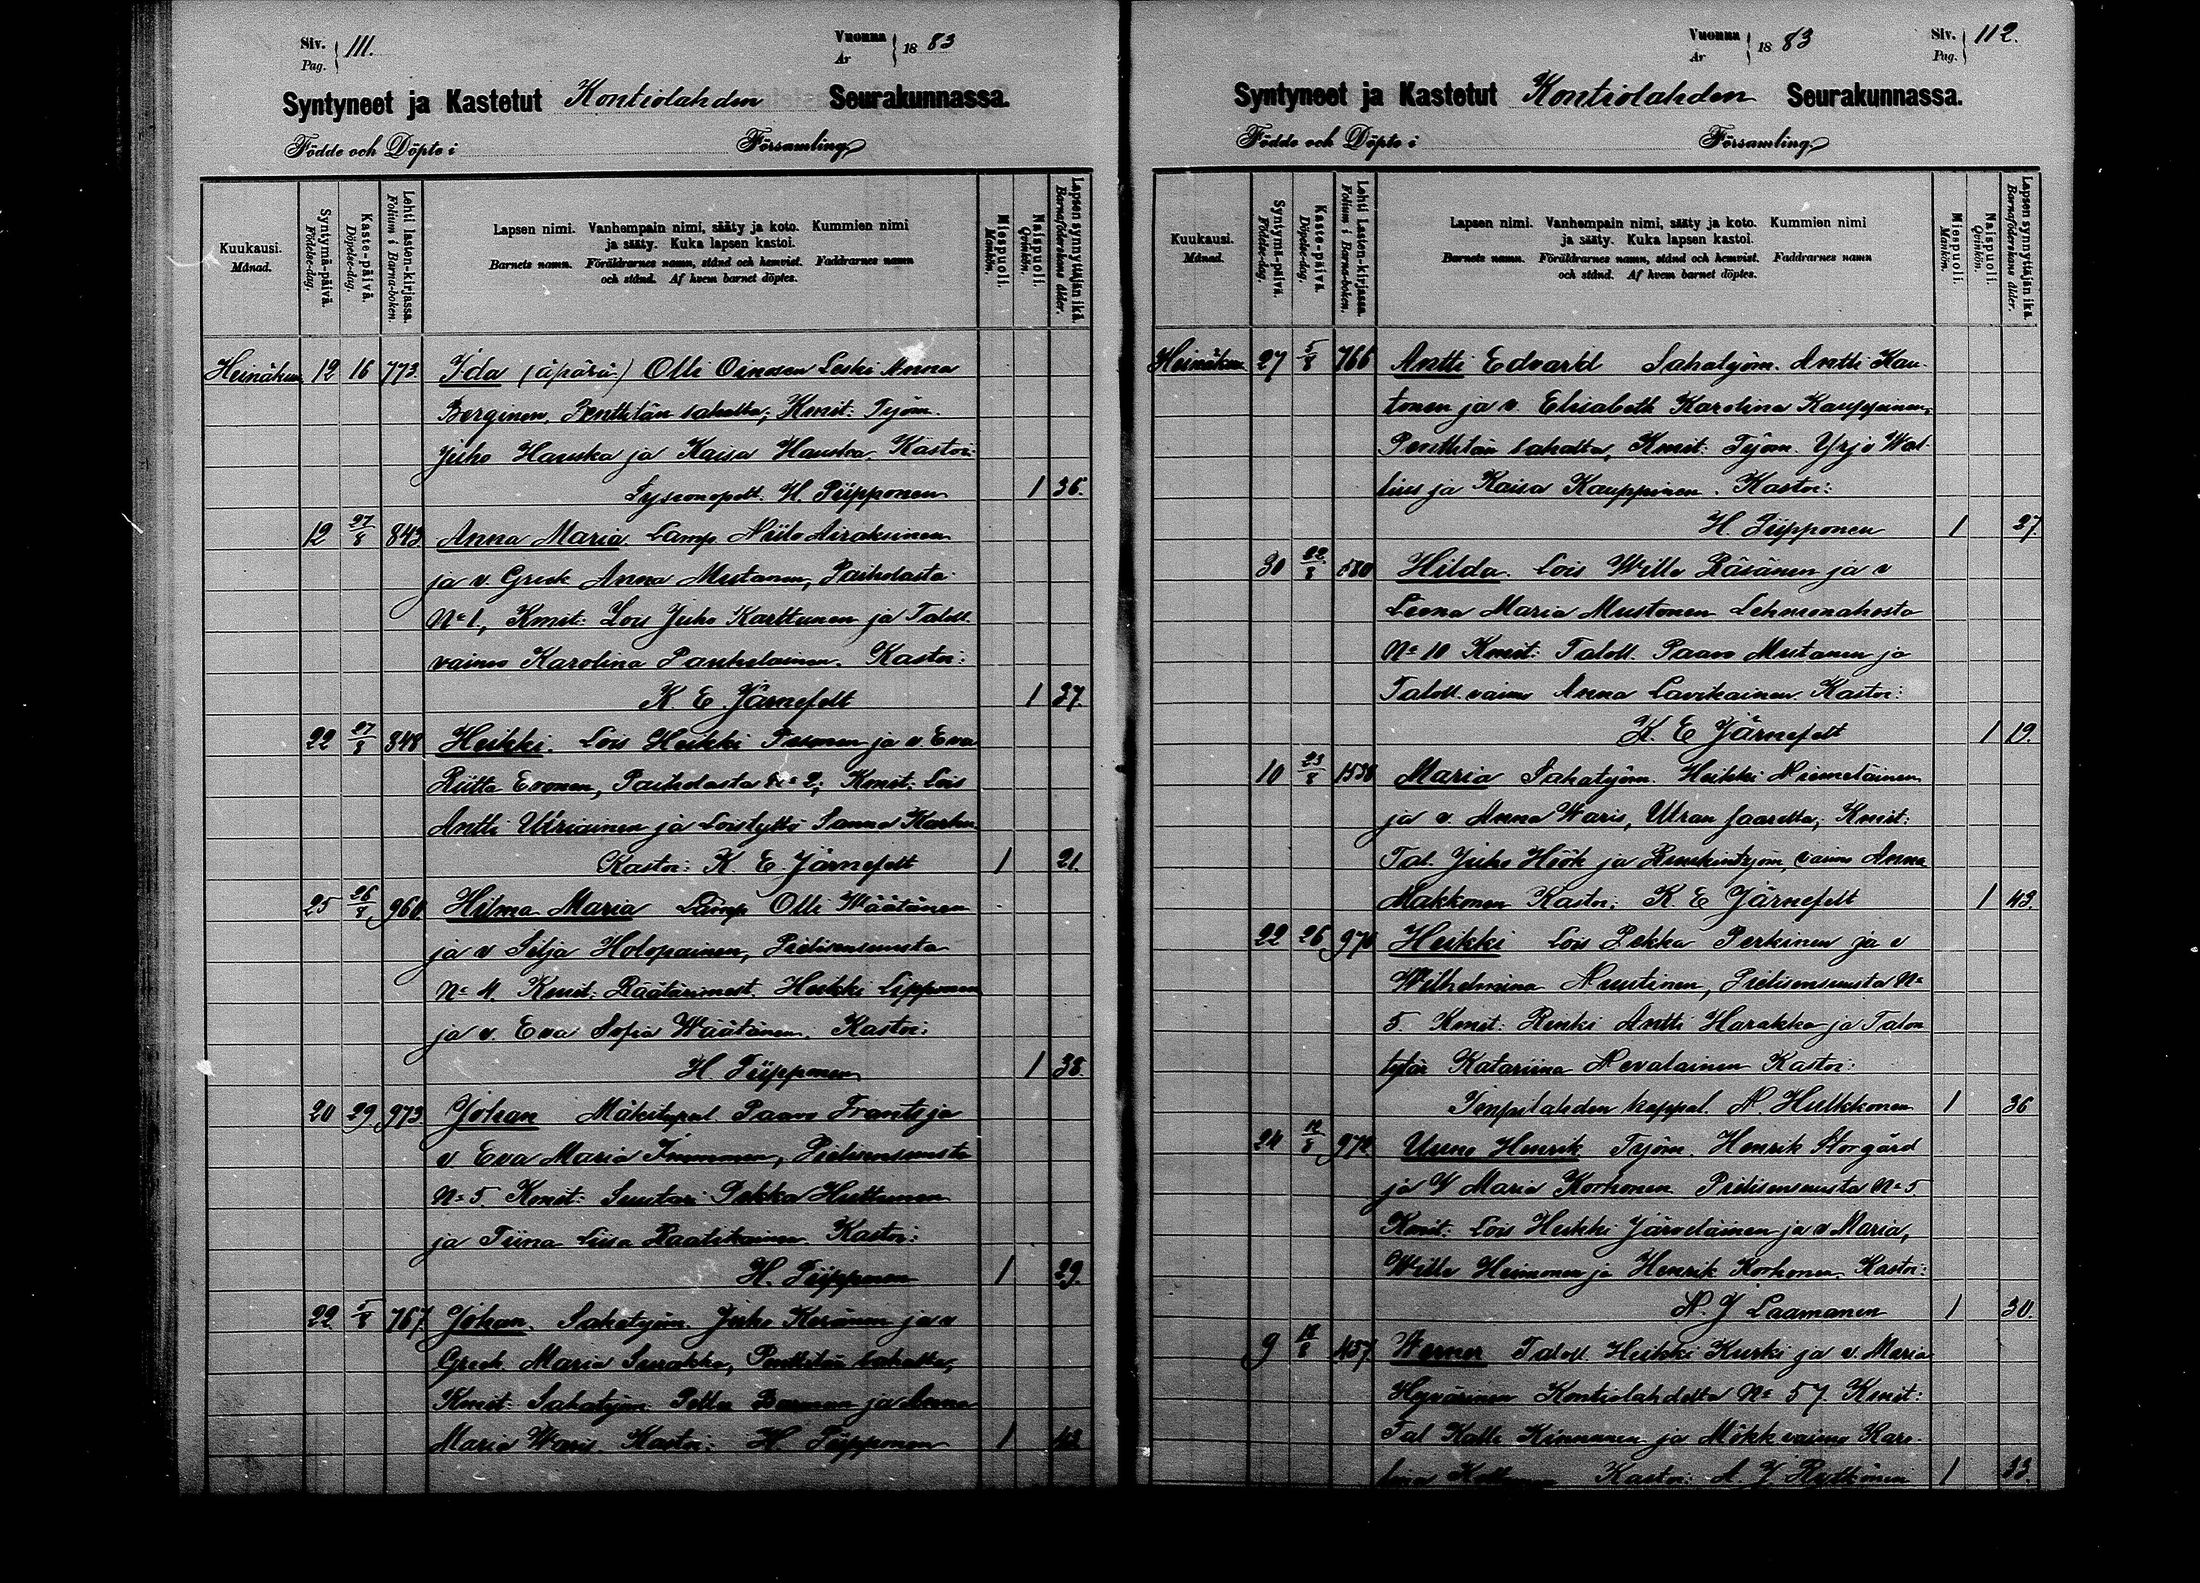 Siv.
Pag. 111.
Vuonna
År 1883
Syntyneet ja Kastetut Kontiolahden Seurakunnassa.
Födde och Döpte i Församling
Kuukausi.
Månad.
Syntymä-päivä.
Födelse-dag.
Kaste-päivä.
Döpelse-dag.
Lehti lasten-kirjassa.
Folium i Barna-boken.
Lapsen nimi. Vanhempain nimi, sääty ja koto. Kummien nimi
ja sääty. Kuka lapsen kastoi.
Barnets namn. Föräldrarnes namn, stånd och hemvist. Faddrarnes namn
och stånd. Af hvem barnet döptes.
Miespuoli.
Mankön.
Naispuoli.
Qvinkön.
Lapsen synnyttäjän ikä.
Barnaföderskans ålder.
Heinäkuu 12 16 773 Ida (äpärä) Olli Oinosen Leski Anna
Berginen, Penttilän sahalta; Kmit: Työm.
Juho Hauska ja Kaisa Hauska. Kastoi:
H. Piipponen 1 36.
12 27/8 843 Anna Maria Lamp Niilo Airaksinen
ja v Greek Anna Mustonen, Paiholasta
No 1, Kmit: Lois Juho Karttunen ja Taloll.
vaimo Karolina Kastoi:
K. E. Järnefelt 1 37.
22 27/8 848 Heikki. Lois Heikki Pesonen ja v. Eva
Riitta Eronen, Paiholasta No 2; Kmit: Lois
Antti Utriainen ja Loistyttö Sanna
Kastoi: K. E. Järnefelt 1 21.
25 26/8 960 Hilma Maria Lamp Olli Wäätänen
ja v Silja Holopainen, Pielisensuusta
No 4. Kmit: Räätärimest. Heikki Lipponen
ja v. Eva Sofia Wäätänen. Kastoi:
H. Piipponen 1 38.
20 29 973 Johan Mäkitupal. Paavo Frantsi ja
v Eva Maria Immonen, Pielisensuusta
No 5. Kmit: Suutari Pekka Huttunen
ja Tiina Liisa Raatikainen. Kastoi:
H. Piipponen 1 29.
22 5/8 767 Johan. Sahatyöm. Juho Keränen ja v
Greek Maria Surakka, Penttilän sahalta;
Kmit: Sahatyöm. Petter Barman ja Anna
Maria Waris. Kastoi: H. Piipponen 1 43.
Vuonna
År 1883
Siv.
Pag. 112.
Syntyneet ja Kastetut Kontiolahden Seurakunnassa.
Födde och Döpte i Församling
Kuukausi.
Månad.
Syntymä-päivä.
Födelse-dag.
Kaste-päivä.
Döpelse-dag.
Lehti Lasten-kirjassa.
Folium i Barna-boken.
Lapsen nimi. Vanhempain nimi, sääty ja koto. Kummien nimi
ja sääty. Kuka lapsen kastoi.
Barnets namn. Föräldrarnes namn, stånd och hemvist. Faddrarnes namn
och stånd. Af hvem barnet döptes.
Miespuoli.
Mankön.
Naispuoli.
Qvinkön.
Lapsen synnyttäjän ikä.
Barnaföderskans ålder.
Heinäkuu 27 5/8 766 Antti Edvard Sahatyöm. Antti Kau-
tonen ja v. Elisabeth Karolina Kauppinen,
Penttilän sahalta, Kmit: Työm. Yrjö Wal-
lius ja Kaisa Kauppinen. Kastoi:
H. Piipponen 1 27.
30 22/8 580 Hilda. Lois Wille Räsänen ja v
Leena Maria Mustonen Lehmonahosta
No 10 Kmit: Taloll. Paavo Mustonen ja
Taloll. vaimo Anna Lavikainen. Kastoi:
K. E Järnefelt 1 19.
10 23/8 1538 Maria Sahatyöm. Heikki Niemeläinen
ja v. Anna Waris, Utran saarelta; Kmit:
Tal. Juho Höök ja Ruukintyöm. vaimo Anna
Makkonen Kastoi: K E Järnefelt 1 43.
22 26 970 Heikki Lois Pekka Perkinen ja v
Wilhelmina Nuutinen, Pielisensuusta No
5. Kmit: Renki Antti Harakka ja Talon
tytär Katariina Nevalainen Kastoi:
kappal. N. Hulkkonen 1 36
24 12/8 972 Uuno Henrik Työm. Henrik Storgård
ja V Maria Korhonen Pielisensuusta No 5
Kmit: Lois Heikki Järveläinen ja v Maria,
Wille Heimonen ja Henrik Korhonen. Kastoi:
N. J Laamanen 1 30.
9 12/8 457 Werner Taloll. Heikki Kurki ja v. Maria
Hyvärinen Kontiolahdelta No 57. Kmit:
Tal Kalle Kinnunen ja Mökk vaimo Karo-
lina Kastoi: A. J. Rytkönen 1 33.